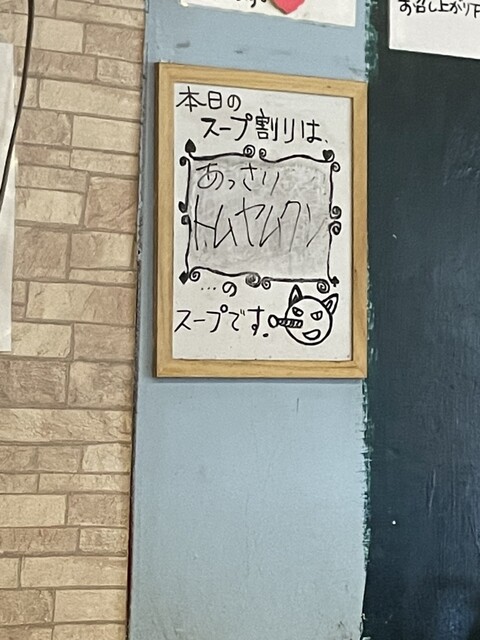 お召し上がり下
本日の
スープ割りは、
あっさり
トムヤムクン
…の
スープです.